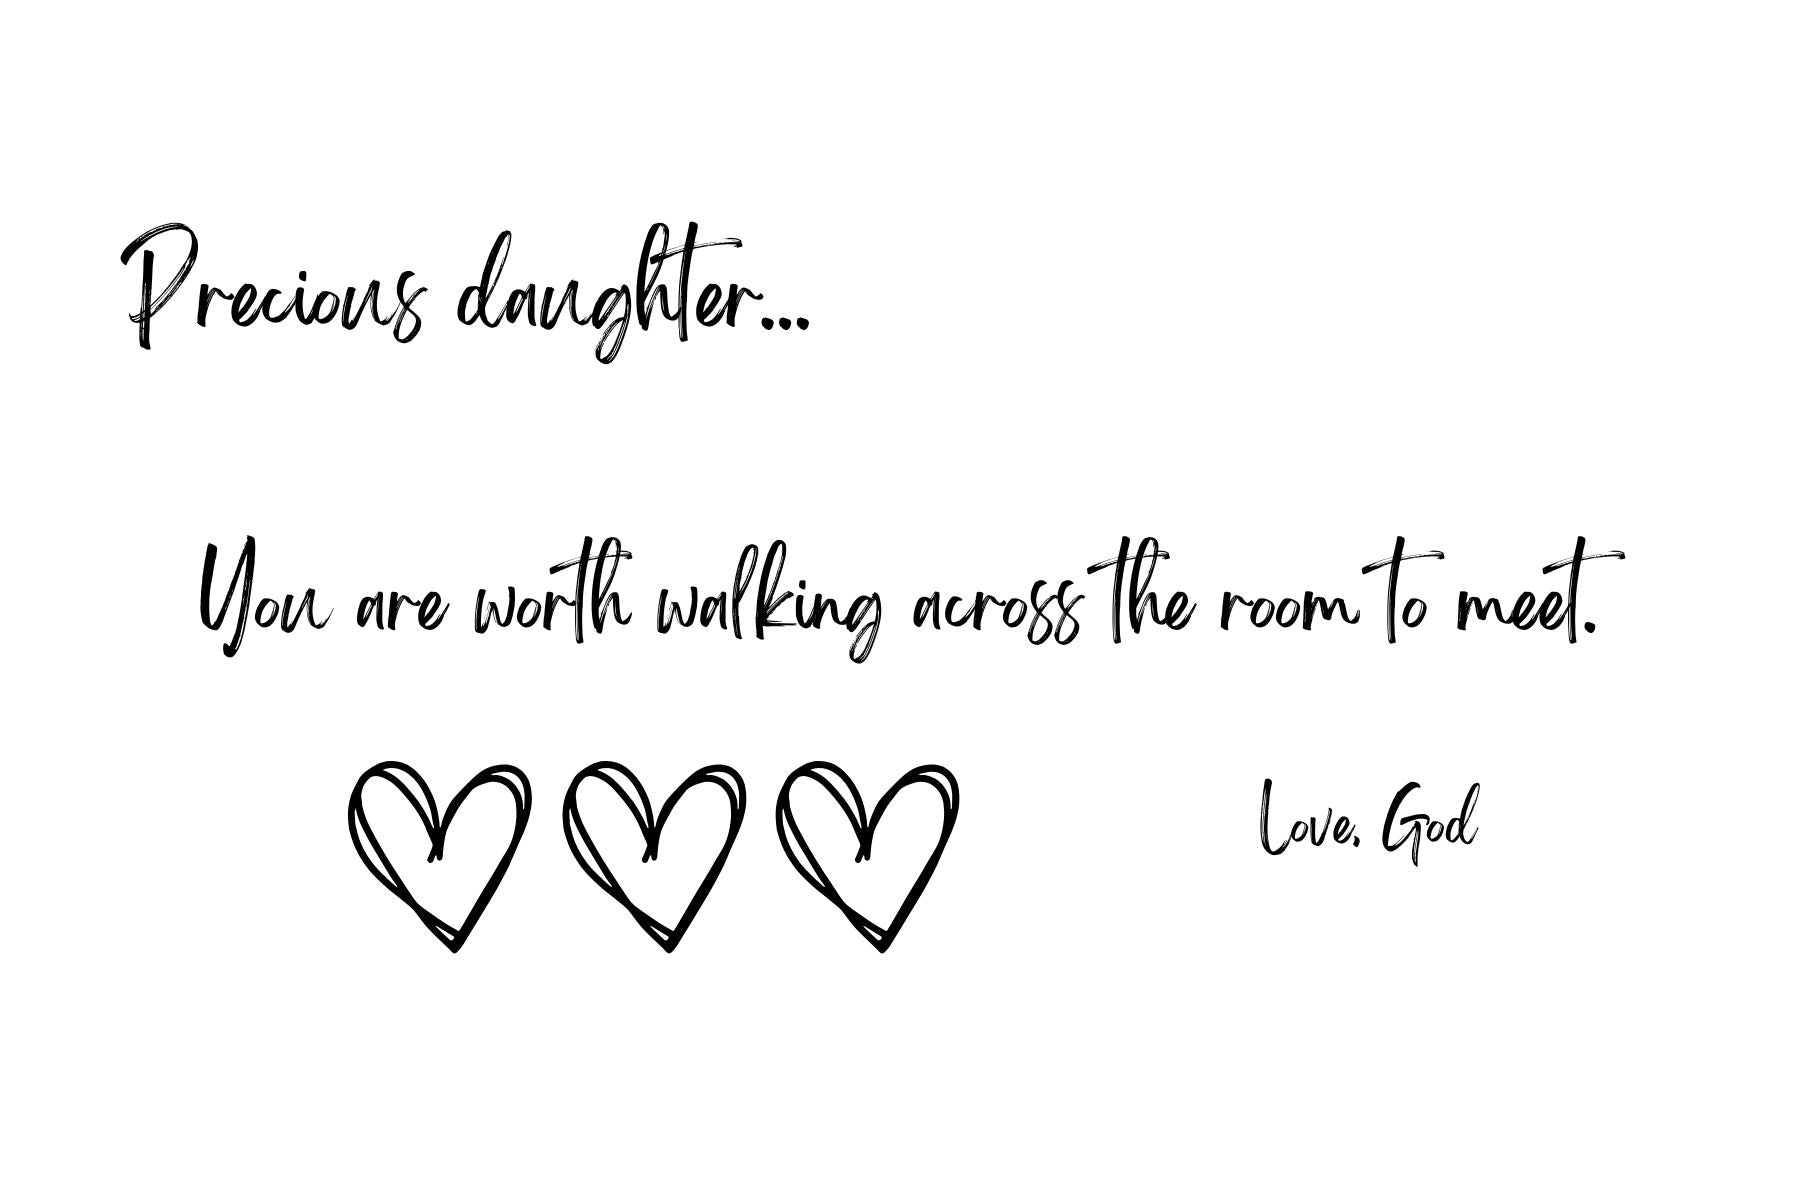 Precious daughter...
You are worth walking across the room to meet.
Love, God